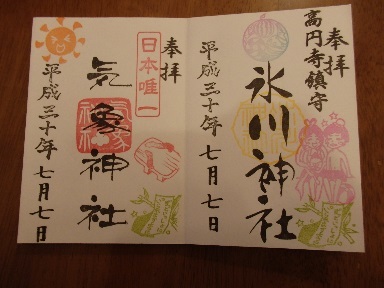 高円寺鎮守
奉拝
氷川神社
平成三十年七月七日
奉拝
日本唯一
気象神社
平成三十年七月七日